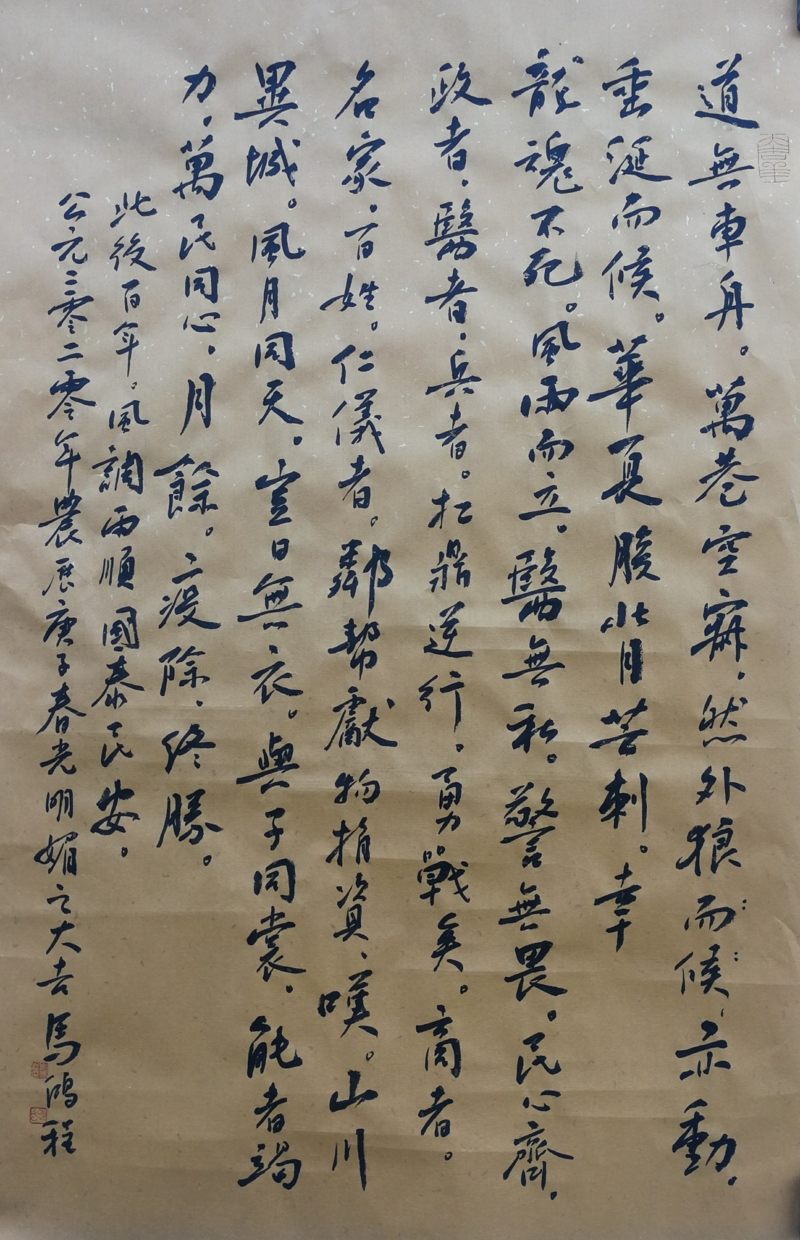 道無車舟。萬巷空寂。然外狼而候，亦動，
垂涎而候。華夏腹背苦刺。幸
龍魂不死。風雨而立。醫無私。警無畏。民心齊。
政者，醫者，兵者。扛鼎逆行。勇戰矣。商者。
名家，百姓。仁儀者。鄰幫獻物捐資、嘆。山川
異城。風月同天。豈曰無衣。與子同裳。能者竭
力，萬民同心，月餘。疫除，終勝。
此後百年。風調雨順國泰民安。
公元二零二零年農历庚子春光明媚之大吉 馬鴻程